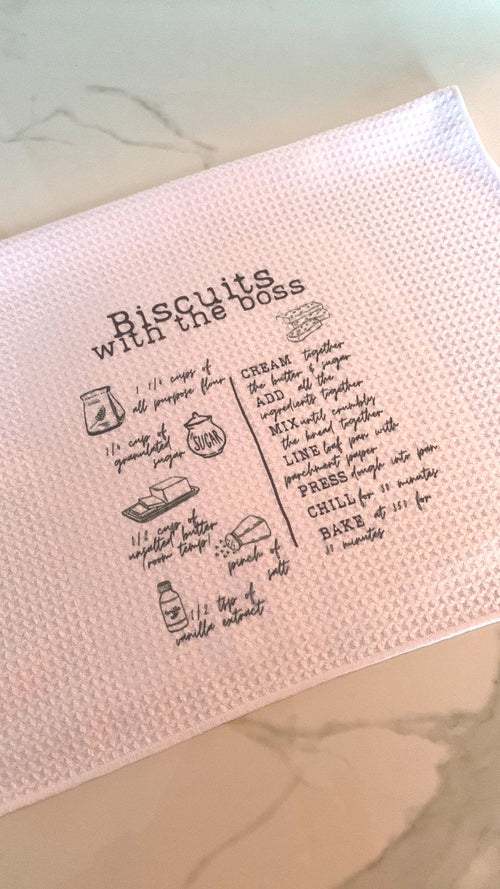 Biscuits
with the boss
1 1/4 cups of
all purpose flour
1/4 cup of
granulated
sugar
SUGAR
1/2 cups of
unsalted butter
(room temp)
pinch of
salt
1/2 tsp of
vanilla extract
CREAM together
the butter & sugar
ADD all the
ingredients together
MIX until crumbly
the knead together
LINE loaf pan with
parchment paper
PRESS dough into pan
CHILL for 30 minutes
BAKE at for
minutes